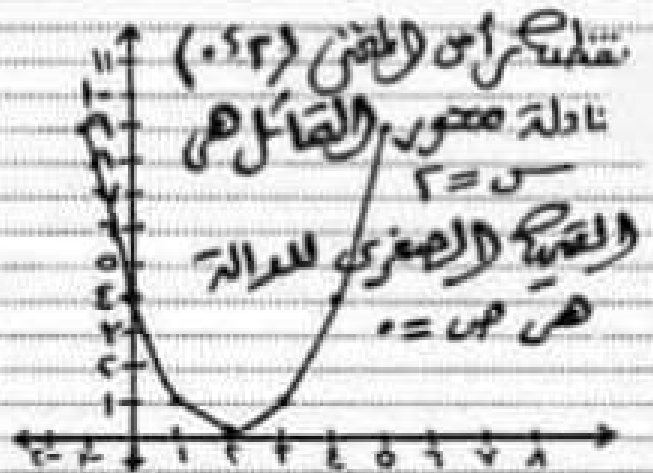 نقطة رأس المنحنى (٢، ٠)
معادلة محور التماثل هى
س = ٢
القيمة الصغرى للدالة
هى ص = ٠
١١
١٠
٩
٨
٧
٦
٥
٤
٣
٢
١
-٢ -١ ١ ٢ ٣ ٤ ٥ ٦ ٧ ٨